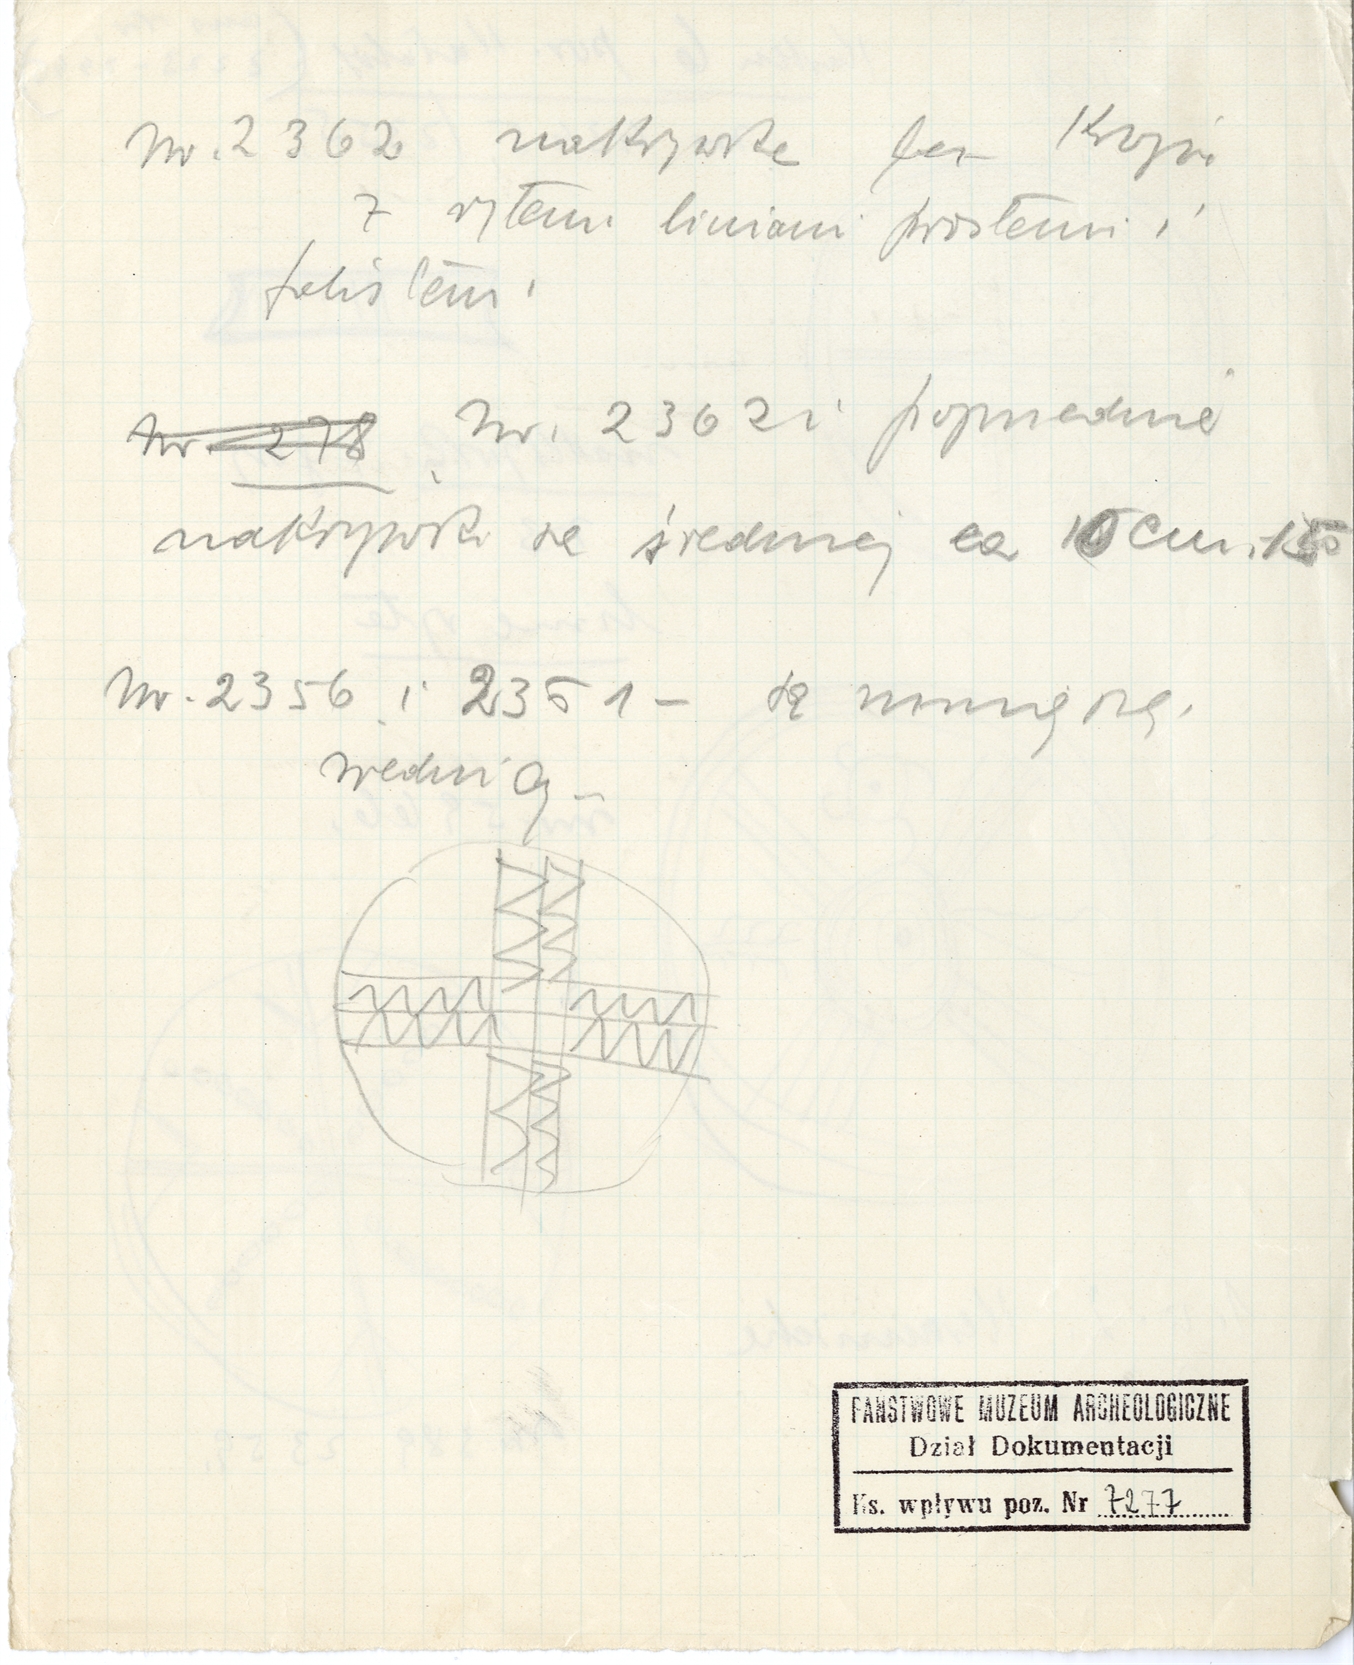 Nr. 2362 nakrywka bez kryzy
z rytemi liniami prostemi i
falistemi
Nr 278 Nr. 2362 i poprzednie
nakrywki są średnicy ca 10 cm i 15
Nr. 2356 i 2351 – są mniejszej
średnicy
PAŃSTWOWE MUZEUM ARCHEOLOGICZNE
Dział Dokumentacji
Ks. wpływu poz. Nr 7277